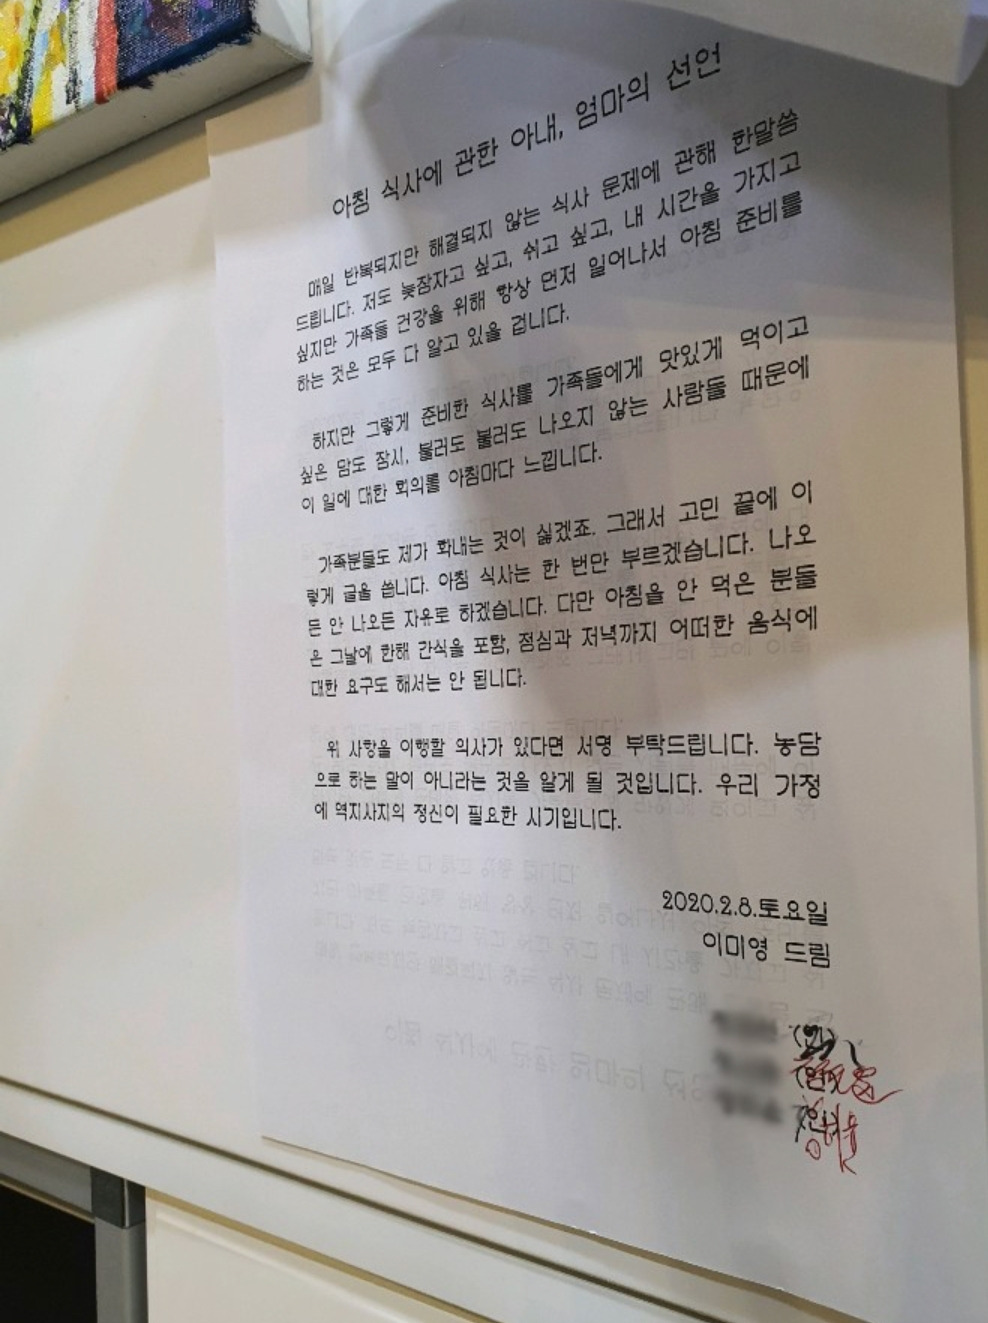 아침 식사에 관한 아내, 엄마의 선언
매일 반복되지만 해결되지 않는 식사 문제에 관해 한말씀
드립니다. 저도 늦잠자고 싶고, 쉬고 싶고, 내 시간을 가지고
싶지만 가족들 건강을 위해 항상 먼저 일어나서 아침 준비를
하는 것은 모두 다 알고 있을 겁니다.
하지만 그렇게 준비한 식사를 가족들에게 맛있게 먹이고
싶은 맘도 잠시, 불러도 불러도 나오지 않는 사람들 때문에
이 일에 대한 회의를 아침마다 느낍니다.
가족분들도 제가 화내는 것이 싫겠죠. 그래서 고민 끝에 이
렇게 글을 씁니다. 아침 식사는 한 번만 부르겠습니다. 나오
든 안 나오든 자유로 하겠습니다. 다만 아침을 안 먹은 분들
은 그날에 한해 간식을 포함, 점심과 저녁까지 어떠한 음식에
대한 요구도 해서는 안 됩니다.
위 사항을 이행할 의사가 있다면 서명 부탁드립니다. 농담
으로 하는 말이 아니라는 것을 알게 될 것입니다. 우리 가정
에 역지사지의 정신이 필요한 시기입니다.
2020.2.8.토요일
이미영 드림
(인)
(인)
(인)